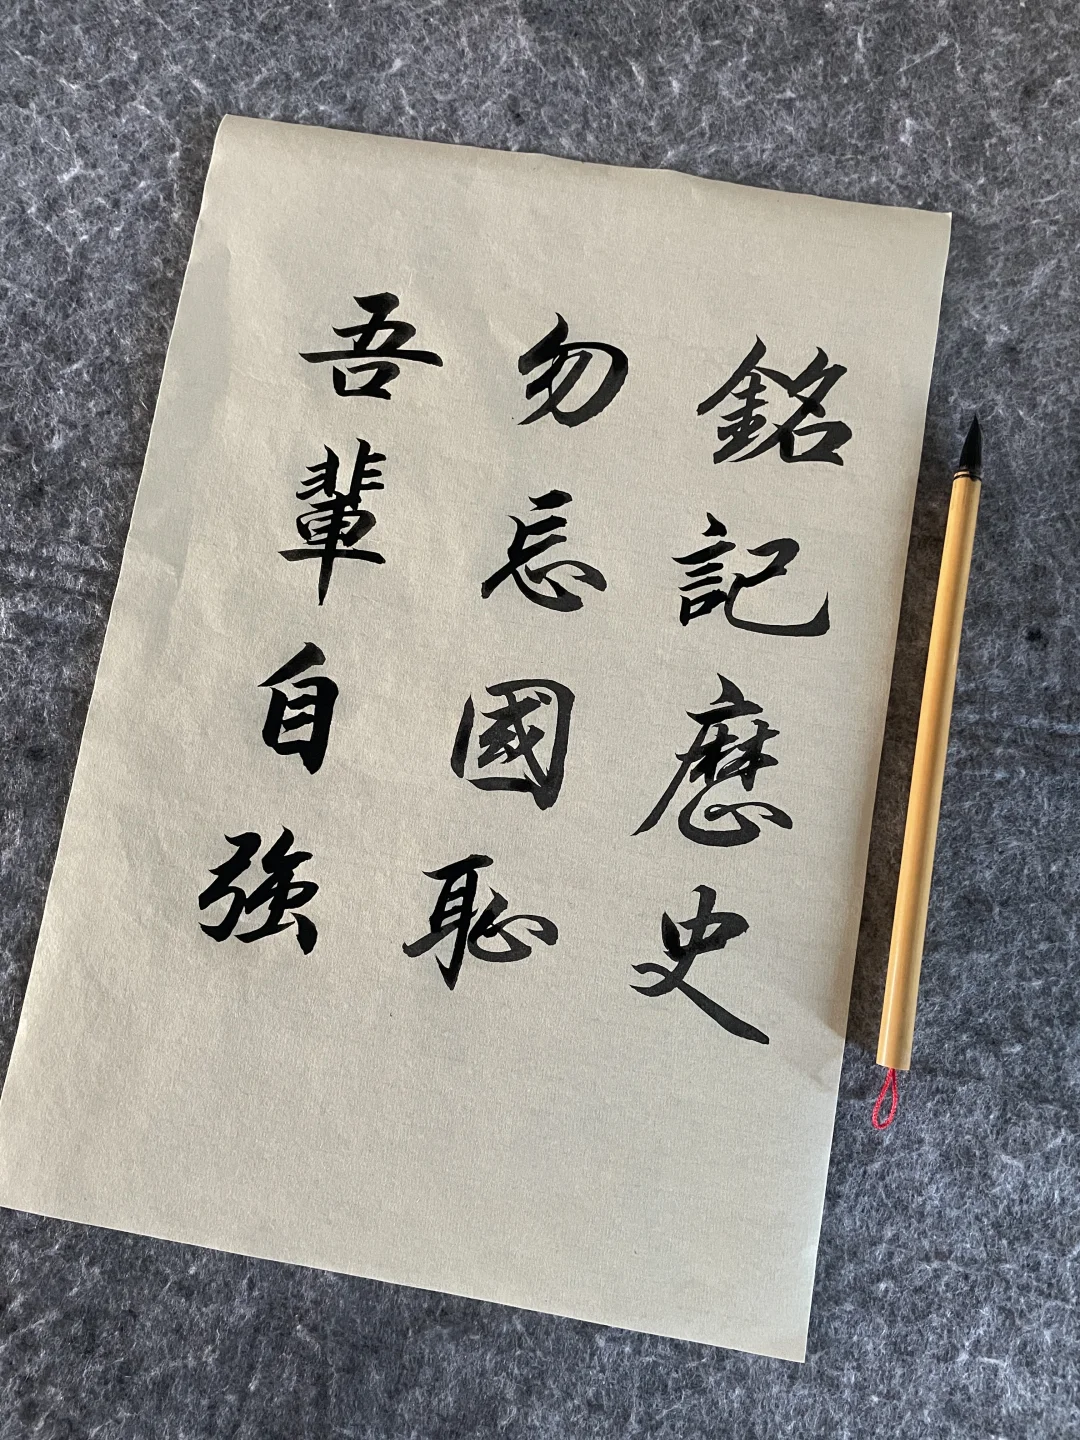 銘記歷史
勿忘國恥
吾輩自強